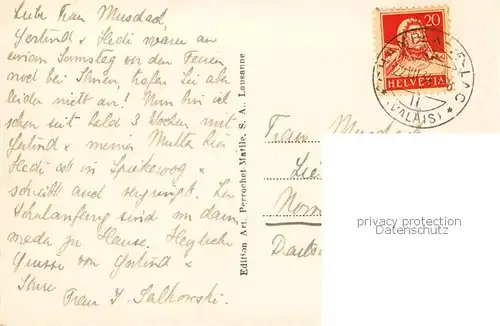 Liebe Frau Musdad,
Gerlind & Hedi waren an
einem Samstag vor den Ferien
noch bei Ihnen, trafen Sie aber
leider nicht an! Nun bin ich
schon seit bald 3 Wochen mit
Gerlind & meiner Mutter hier
Hedi ist in Spiekeroog &
schreibt auch vergnügt. Zum
Schulanfang sind wir dann
wieder zu Hause. Herzliche
Grüsse von Gerlind &
Ihre
Frau J. Salkowski.
Edition Art. Perrochet-Matile, S. A., Lausanne
20
HELVETIA
(VALAIS)
Frau Musdad
privacy protection
www.ansichtskarten-center.de